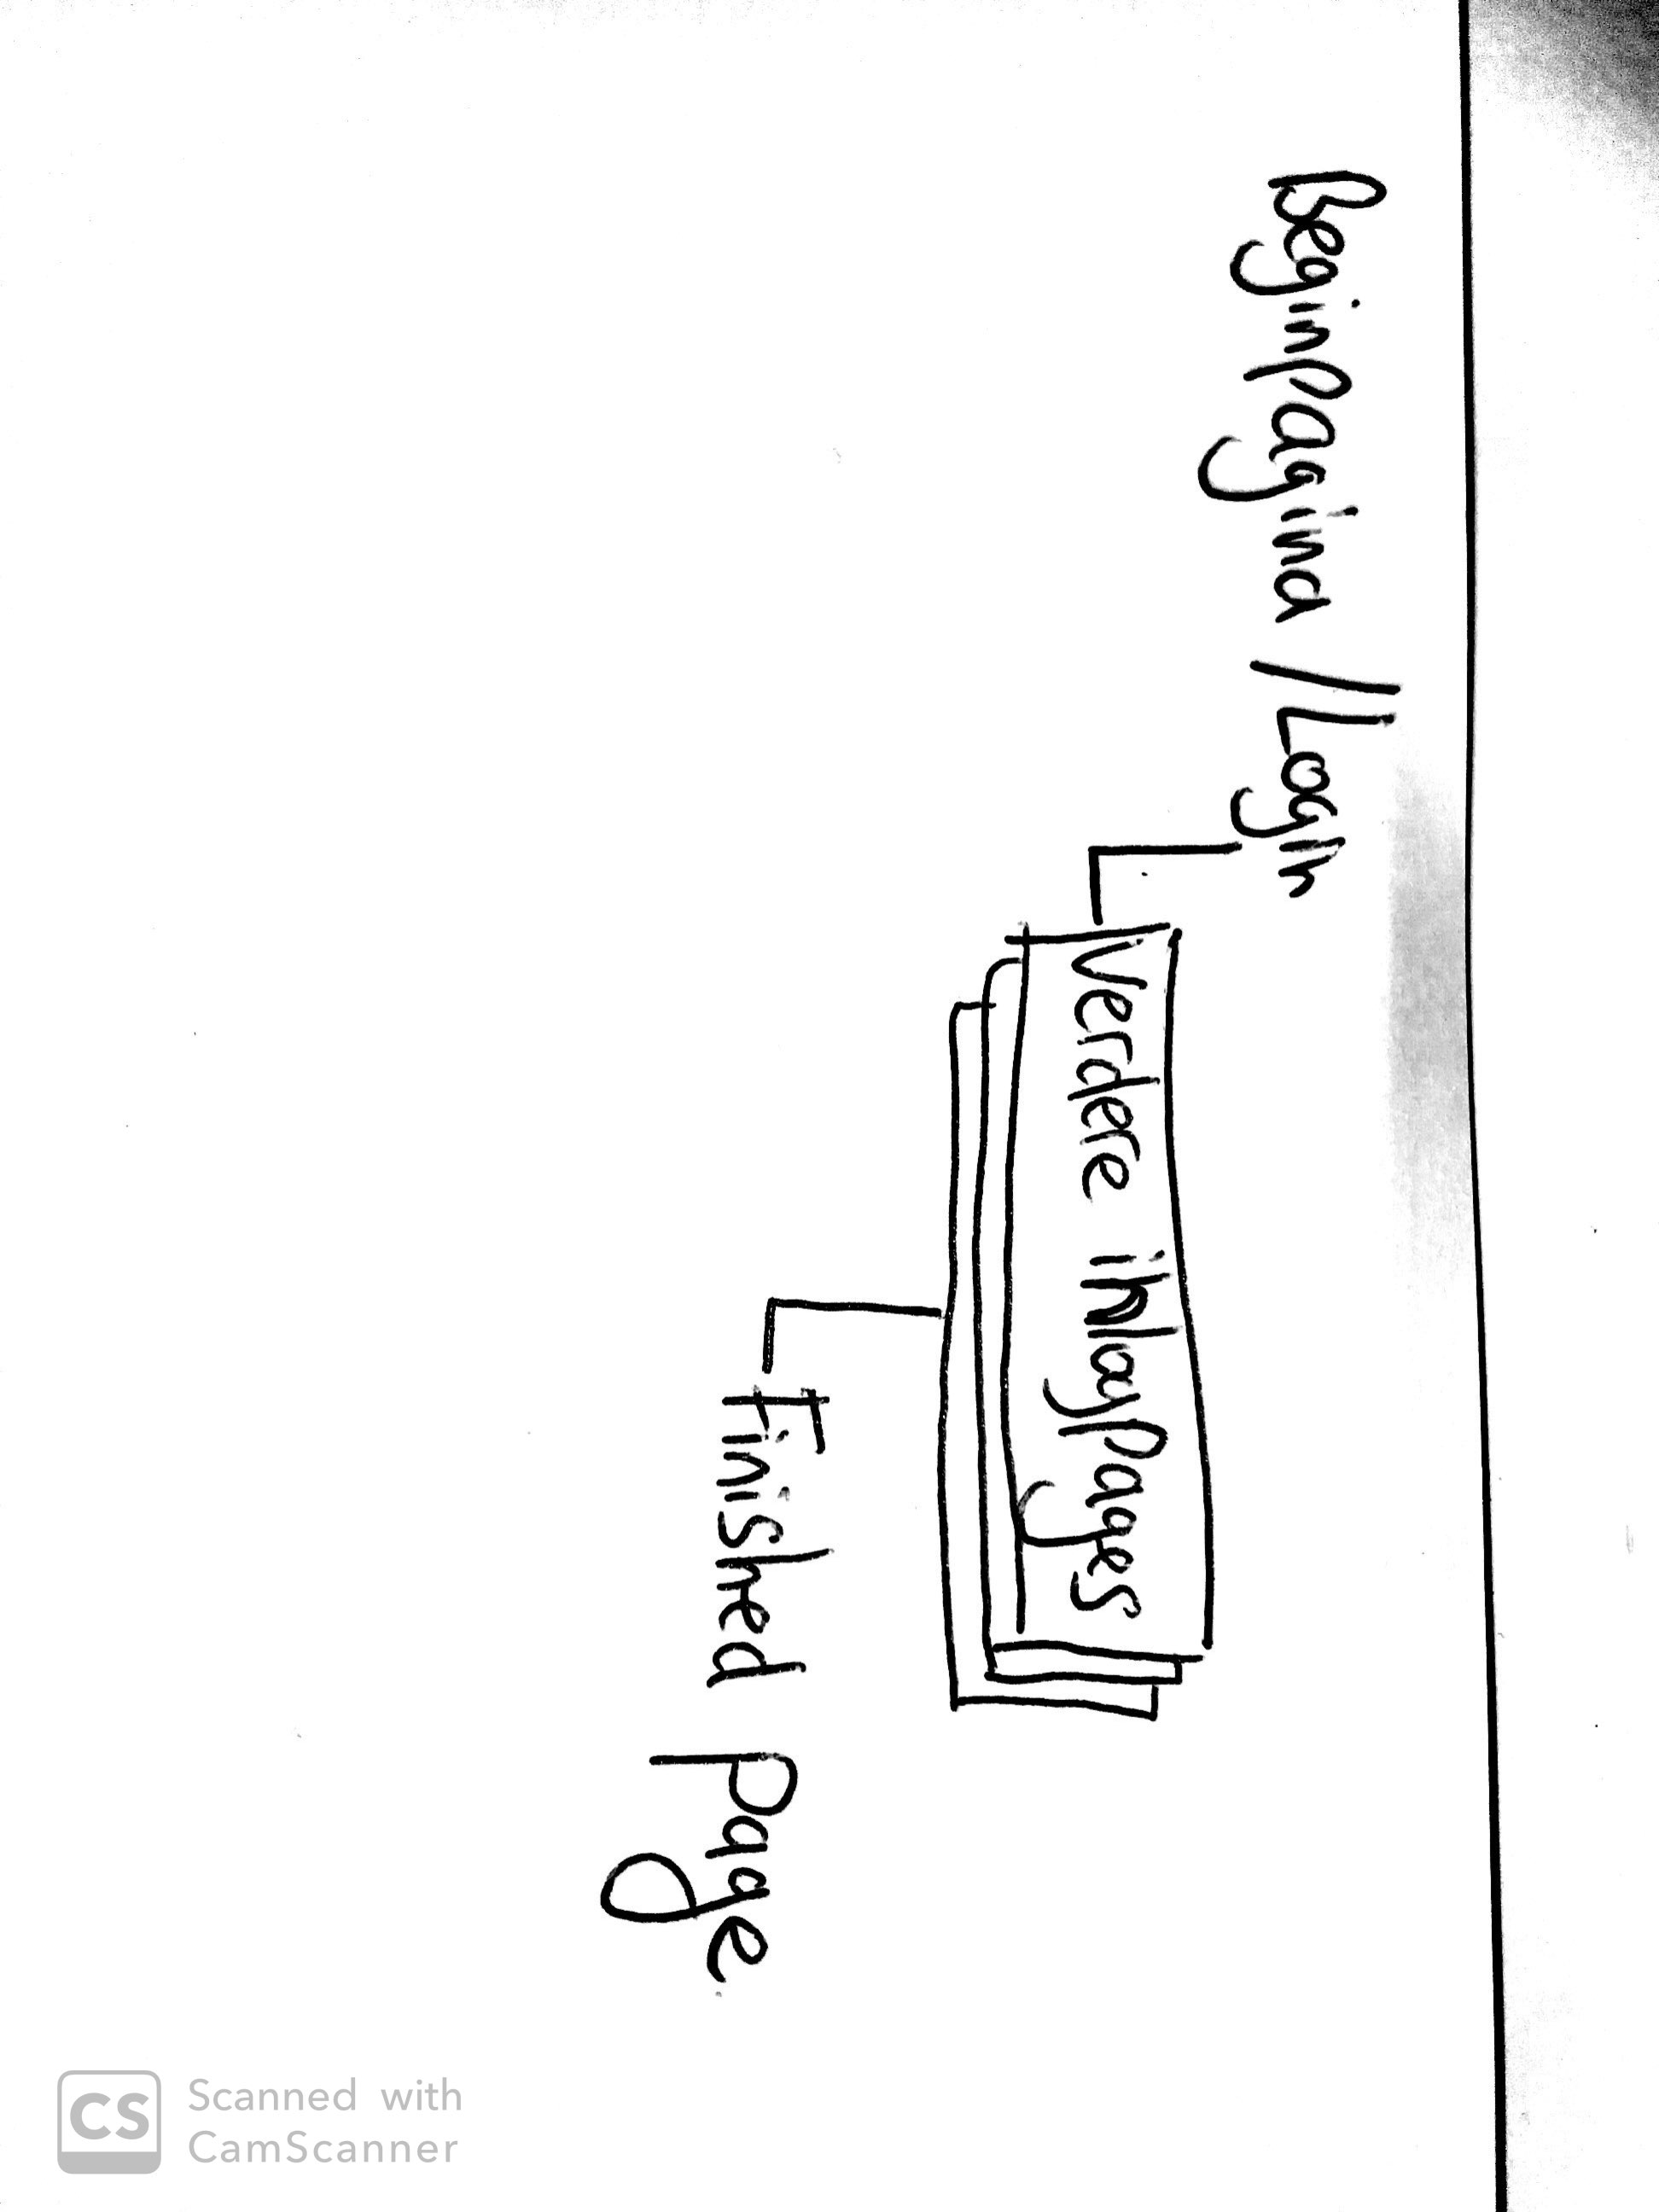 Beginpagina / Login
Verdere inlogpages
Finished Page
CS
Scanned with
CamScanner